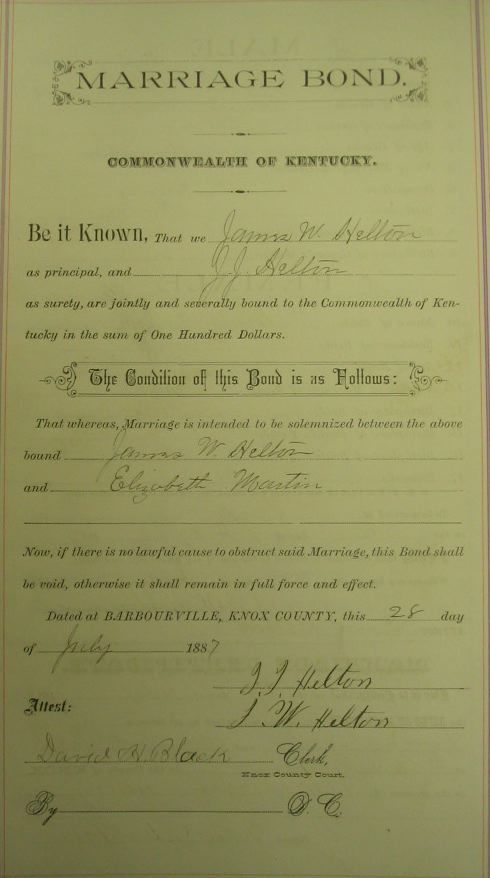 MARRIAGE BOND.
COMMONWEALTH OF KENTUCKY.
Be it Known, That we James W. Helton
as principal, and J. J. Helton
as surety, are jointly and severally bound to the Commonwealth of Ken-
tucky in the sum of One Hundred Dollars.
The Condition of this Bond is as Follows:
That whereas, Marriage is intended to be solemnized between the above
bound James W. Helton
and Elizabeth Martin
Now, if there is no lawful cause to obstruct said Marriage, this Bond shall
be void, otherwise it shall remain in full force and effect.
Dated at BARBOURVILLE, KNOX COUNTY, this 28 day
of July 1887
J. J. Helton
Attest: J. W. Helton
David H. Black Clerk,
Knox County Court.
By D. C.